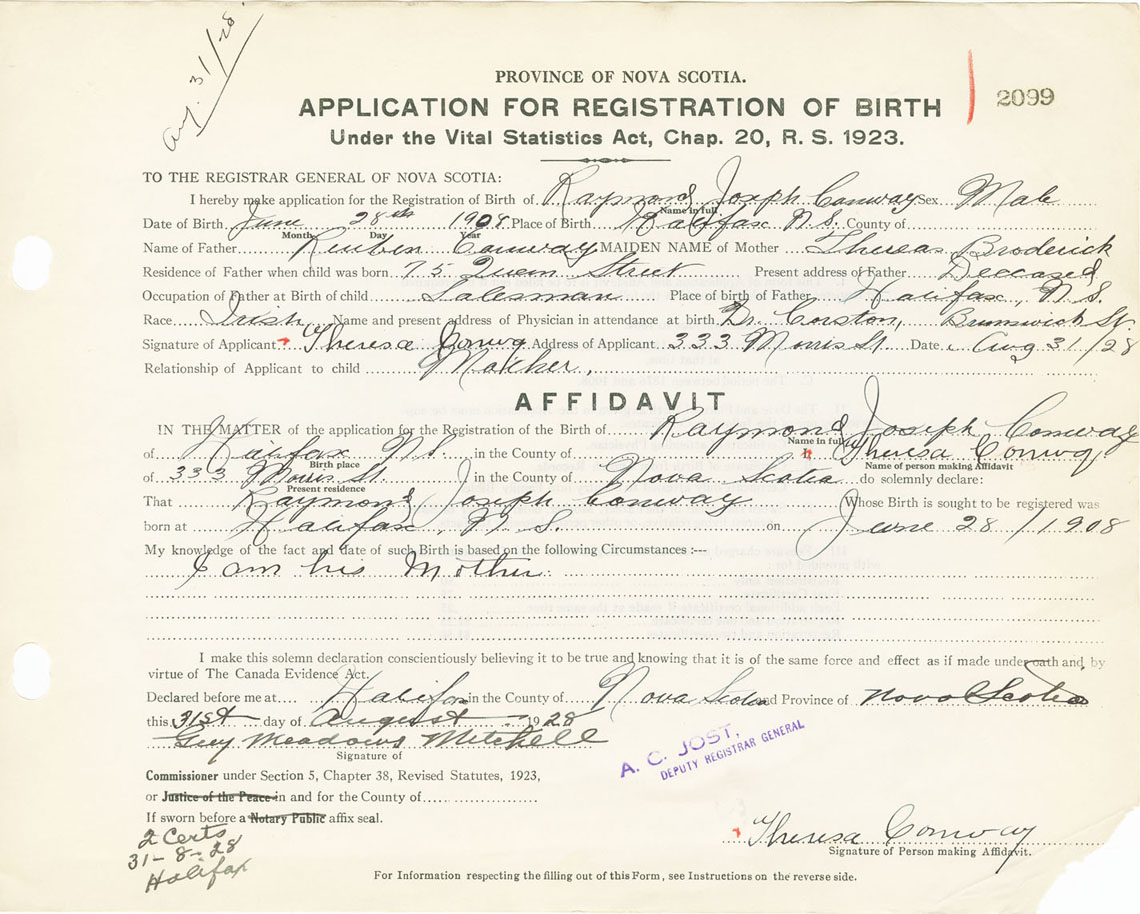 Aug. 31/28.
PROVINCE OF NOVA SCOTIA.
2099
APPLICATION FOR REGISTRATION OF BIRTH
Under the Vital Statistics Act, Chap. 20, R. S. 1923.
TO THE REGISTRAR GENERAL OF NOVA SCOTIA:
I hereby make application for the Registration of Birth of Raymond Joseph Conway Sex Male
Name in full
Date of Birth June 28th 1908 Place of Birth Halifax N.S. County of
Month Day Year
Name of Father Reuben Conway MAIDEN NAME of Mother Thereas Broderick
Residence of Father when child was born 75 Queen Street Present address of Father Deceased
Occupation of Father at Birth of child Salesman Place of birth of Father Halifax, N.S.
Race Irish Name and present address of Physician in attendance at birth Dr. Corston, Brunswick St.
Signature of Applicant Theresa Conway Address of Applicant 333 Morris St. Date Aug 31/28
Relationship of Applicant to child Mother,
AFFIDAVIT
IN THE MATTER of the application for the Registration of the Birth of Raymond Joseph Conway
Name in full
of Halifax N.S. in the County of Theresa Conway,
Birth place Name of person making Affidavit
of 333 Morris St. in the County of Nova Scotia do solemnly declare:
Present residence
That Raymond Joseph Conway Whose Birth is sought to be registered was
born at Halifax, N.S. on June 28/1908
My knowledge of the fact and date of such Birth is based on the following Circumstances :---
I am his Mother.
I make this solemn declaration conscientiously believing it to be true and knowing that it is of the same force and effect as if made under oath and by
virtue of The Canada Evidence Act.
Declared before me at Halifax in the County of Nova Scotia and Province of Nova Scotia
this 31st day of August 1928
Guy Meadows Mitchell
Signature of
A. C. JOST,
DEPUTY REGISTRAR GENERAL
Commissioner under Section 5, Chapter 38, Revised Statutes, 1923,
or Justice of the Peace in and for the County of
If sworn before a Notary Public affix seal.
2 Certs
31-8-28
Halifax
Theresa Conway
Signature of Person making Affidavit.
For Information respecting the filling out of this Form, see Instructions on the reverse side.